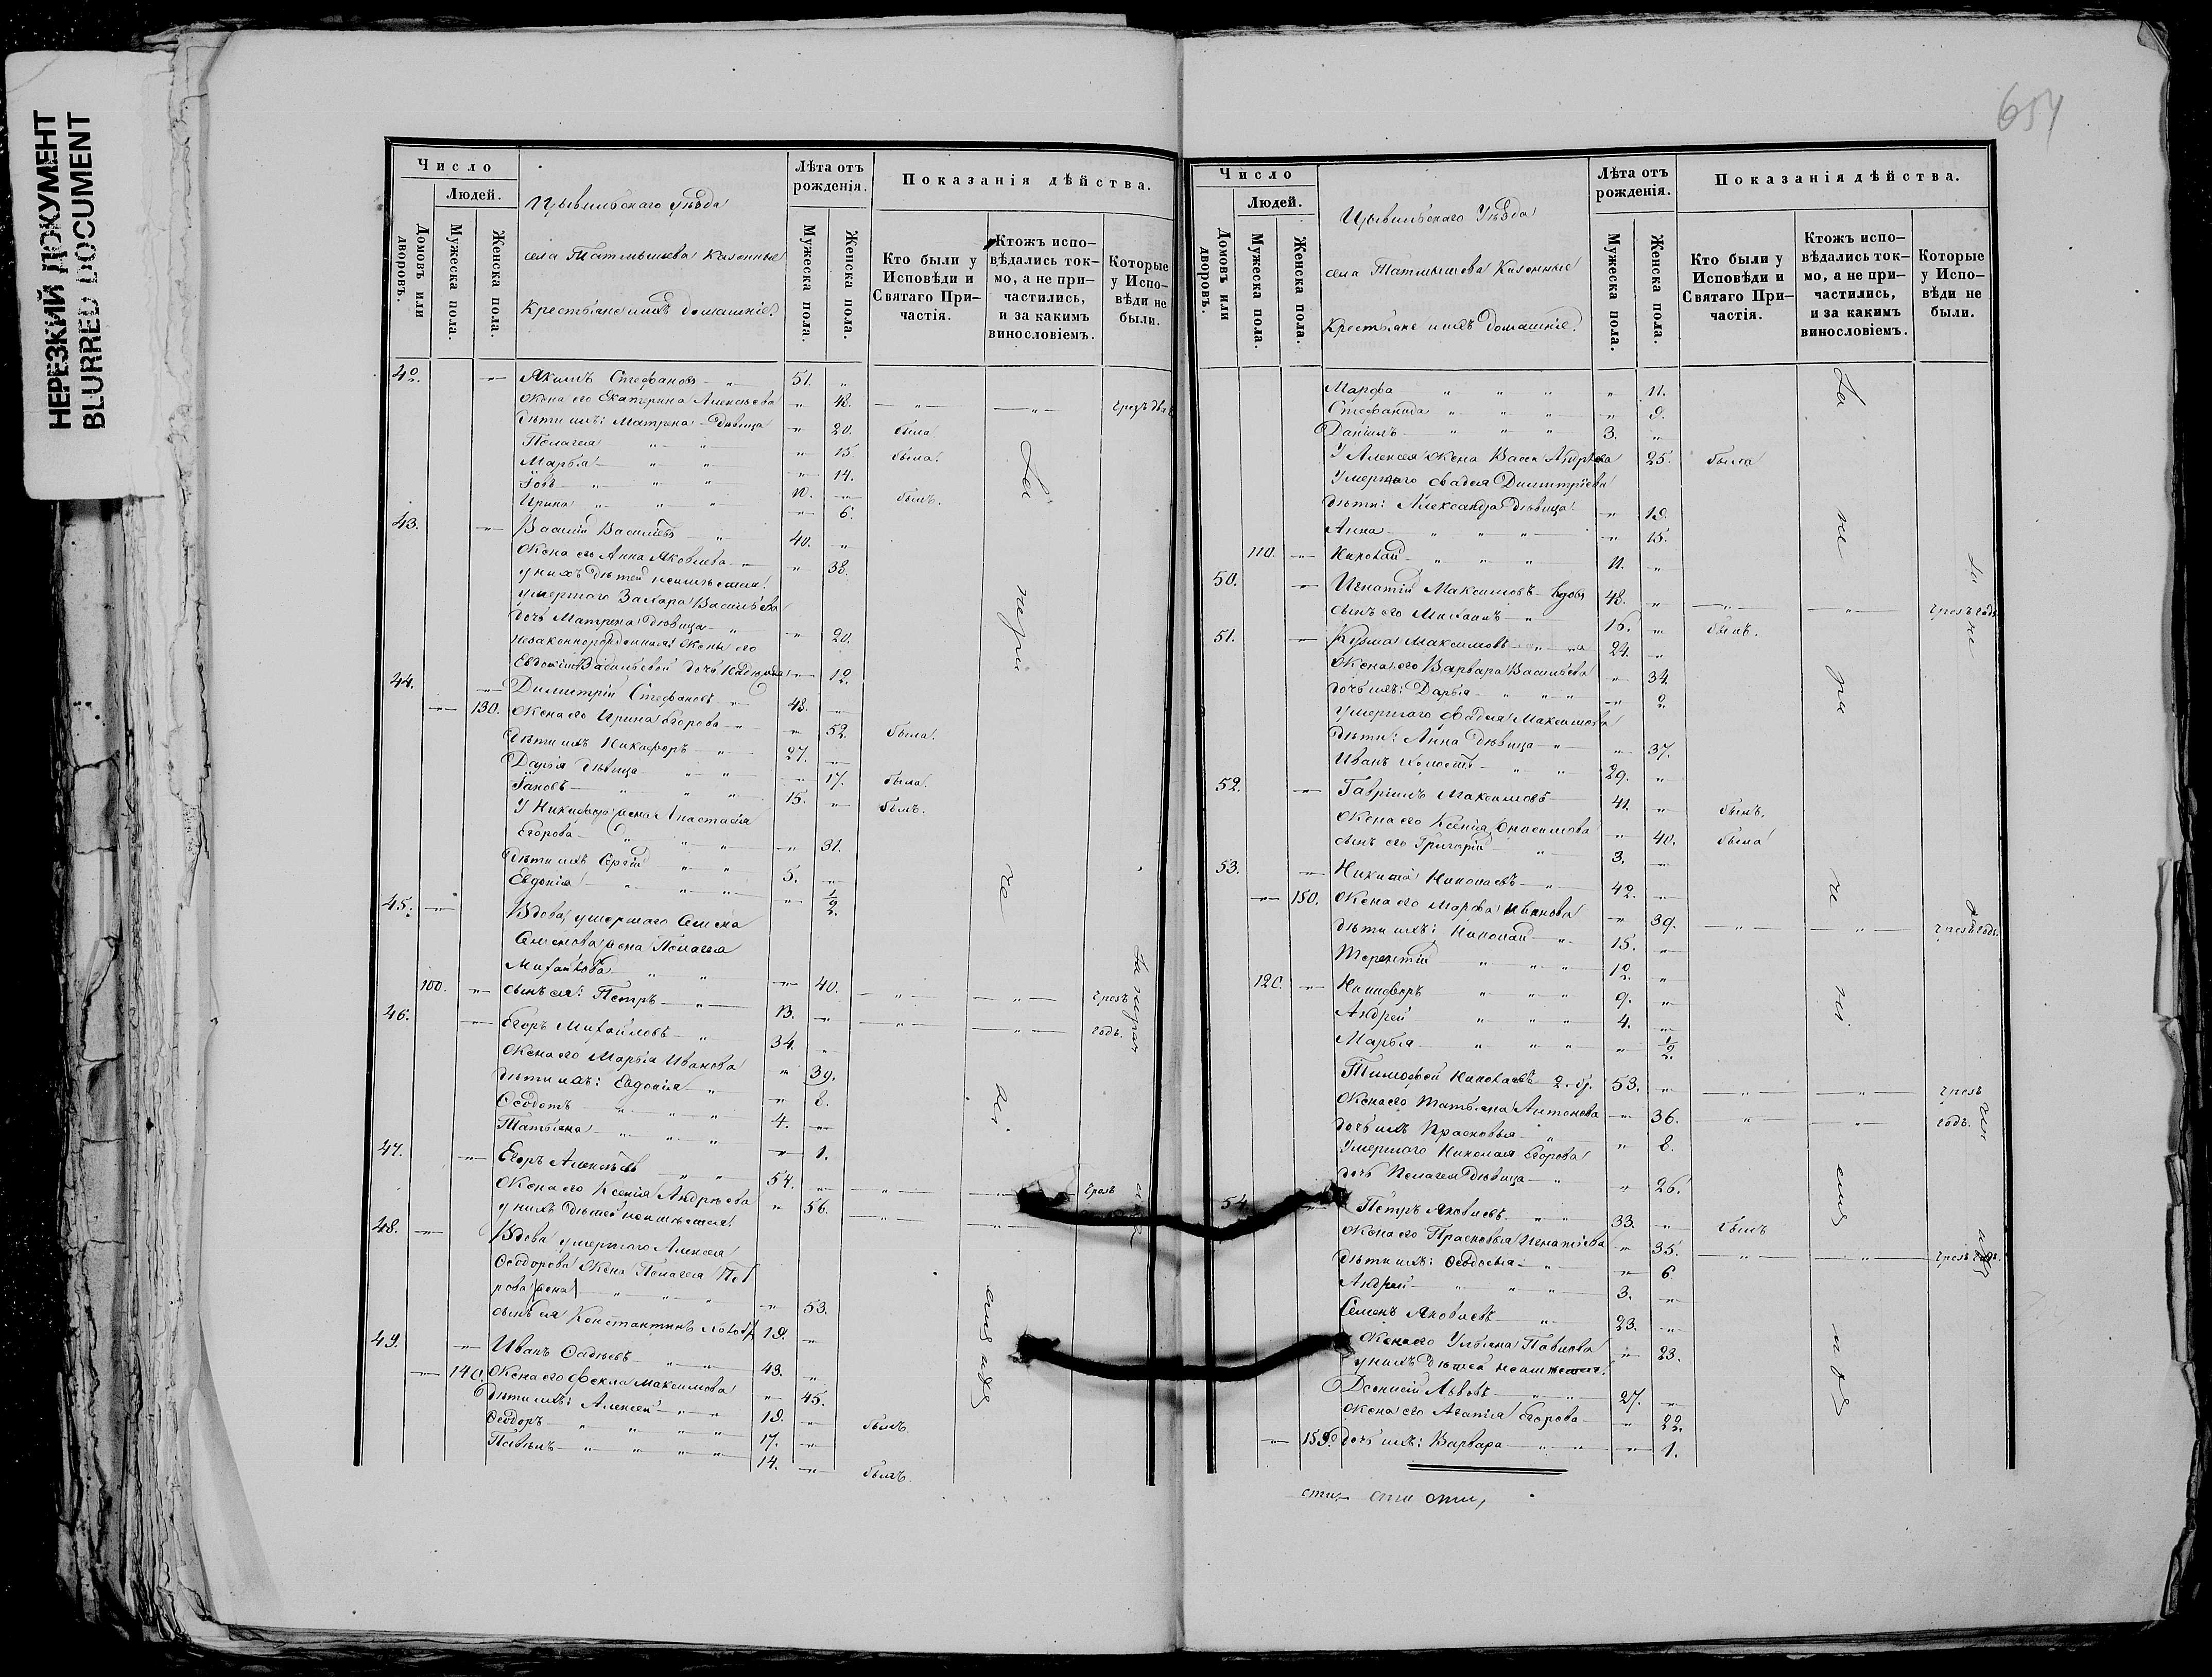 НЕРЕЗКИЙ ДОКУМЕНТ
BLURRED DOCUMENT
Число
Людей.
Домовъ или дворовъ.
Мужеска пола.
Женска пола.
Цывильскаго уѣзда
села Татмышева казенные
крестьяне и ихъ домашніе.
Лѣта отъ рожденія.
Мужеска пола.
Женска пола.
Показанія дѣйства.
Кто были у Исповѣди и Святаго Причастія.
Ктожъ исповѣдались токмо, а не причастились, и за какимъ винословіемъ.
Которые у Исповѣди не были.
42. Якимъ Стефановъ 51.
Жена его Екатерина Алексѣева 48.
Дѣти ихъ: Матрена Дѣвица 20. была.
Пелагея 15. была.
Марья 14.
Іовъ 10. былъ.
Ирина 6.
43. Василій Васильевъ 40.
Жена его Анна Яковлева 38.
у нихъ дѣтей неимѣется.
умершаго Захара Васильева
дочь Матрена Дѣвица 20.
незаконнорожденная жены его
Евдокіи Васильевой дочь 12.
44. Димитрій Стефановъ 48.
130. Жена его Ирина Егорова 52. была.
Дѣти ихъ Никифоръ 27.
Дарія Дѣвица 17. была.
Іаковъ 15. былъ.
У Никифора жена Анастасія
Егорова 31.
Дѣти ихъ Сергій 5.
Евдокія 1/2.
45. Вдова умершаго Семена
Семенова жена Пелагея
Михайлова 40.
100. сынъ ея: Петръ 13. чрезъ
46. Егоръ Михайловъ 34. годъ.
Жена его Марья Иванова 39.
Дѣти ихъ: Евдокія 8.
Ѳеодотъ 4.
Татьяна 1.
47. Егоръ Алексѣевъ 54. чрезъ
Жена его Ксенія Андреева 56.
у нихъ дѣтей неимѣется.
48. Вдова умершаго Алексея
Ѳеодорова жена Пелагея Пет
рова 53.
сынъ ея Константинъ 19.
49. Иванъ Фадѣевъ 43.
140. Жена его Фекла Максимова 45.
Дѣти ихъ: Алексей 19. былъ
Ѳеодоръ 17.
Павелъ 14. былъ.
654
Число
Людей.
Домовъ или дворовъ.
Мужеска пола.
Женска пола.
Цывильскаго Уѣзда
села Татмышева казенные
крестьяне и ихъ домашніе.
Лѣта отъ рожденія.
Мужеска пола.
Женска пола.
Показанія дѣйства.
Кто были у Исповѣди и Святаго Причастія.
Ктожъ исповѣдались токмо, а не причастились, и за какимъ винословіемъ.
Которые у Исповѣди не были.
Марфа 11.
Стефанида 9.
Даніилъ 3.
У Алексея жена Васса Андреева 25. была
Умершаго Фадея Димитріева
дѣти: Александра Дѣвица 19.
Анна 15.
110. Николай 11.
50. Игнатій Максимовъ вдовъ 48. чрезъ годъ.
сынъ его Михаилъ 16. былъ.
51. Кузьма Максимовъ 24.
Жена его Варвара Васильева 34.
дочь ихъ: Дарья 2
Умершаго Фадея Максимова
дѣти: Анна Дѣвица 37.
Иванъ холостъ 29.
52. Гавріилъ Максимовъ 41. былъ.
Жена его Ксенія Онисимова 40. была
сынъ его Григорій 3.
53. Никита Николаевъ 42.
150. Жена его Марфа Иванова 39. чрезъ годъ.
Дѣти ихъ: Николай 15.
Терентій 12.
120. Никифоръ 9.
Андрей 4.
Марья 1/2.
Тимофей Николаевъ 2. б. 53. чрезъ
Жена его Татьяна Антонова 36. годъ.
дочь ихъ Прасковья 8.
Умершаго Николая Егорова
дочь Пелагея Дѣвица 26.
54. Петръ Яковлевъ 33. былъ
Жена его Прасковья Игнатіева 35. чрезъ годъ.
Дѣти ихъ: Ѳеодосья 6
Андрей 3.
Семенъ Яковлевъ 23.
Жена его Ульяна Павлова 23.
у нихъ дѣтей неимѣется.
Діонисій Львовъ 27.
Жена его Агапія Егорова 22.
159. дочь ихъ: Варвара 1.